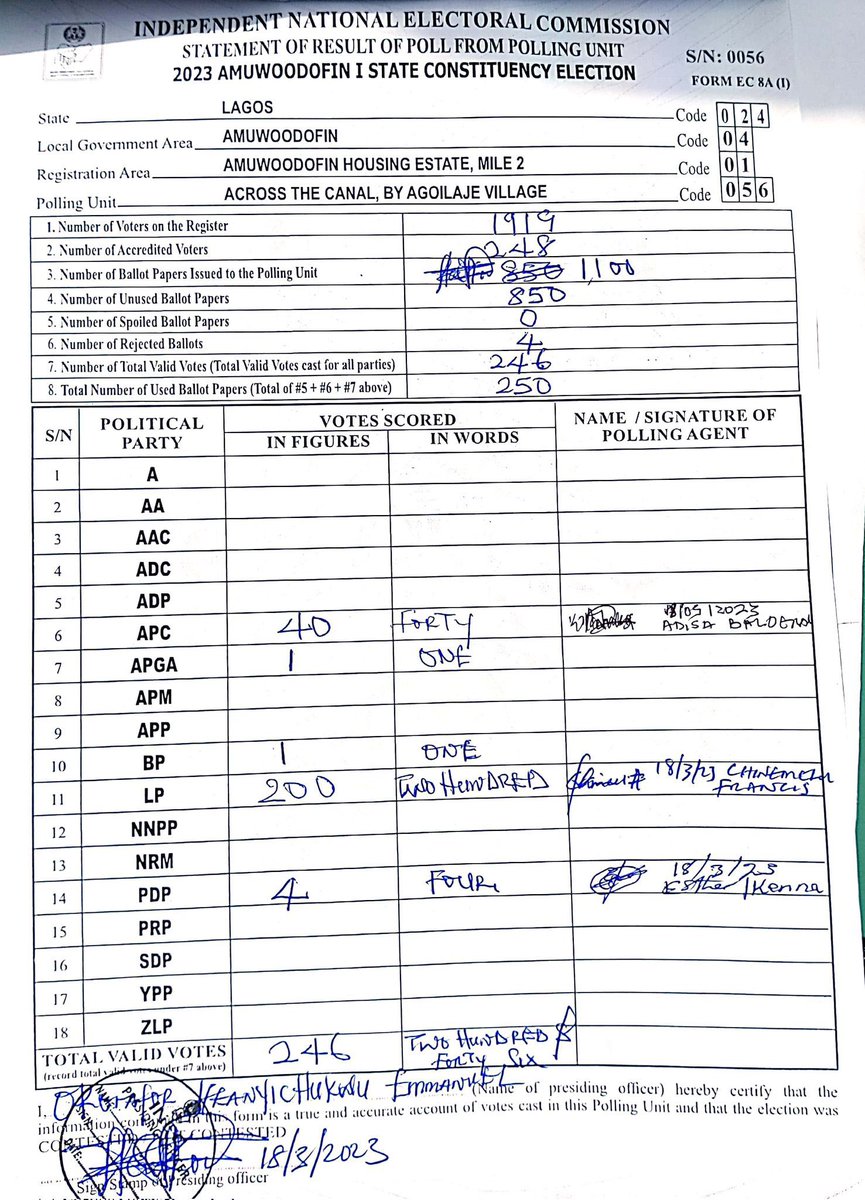 INDEPENDENT NATIONAL ELECTORAL COMMISSION
STATEMENT OF RESULT OF POLL FROM POLLING UNIT
S/N: 0056
2023 AMUWOODOFIN I STATE CONSTITUENCY ELECTION
FORM EC 8A (I)
State LAGOS Code 0 2 4
Local Government Area AMUWOODOFIN Code 0 4
Registration Area AMUWOODOFIN HOUSING ESTATE, MILE 2 Code 0 1
Polling Unit ACROSS THE CANAL, BY AGOILAJE VILLAGE Code 0 5 6
1. Number of Voters on the Register 1919
2. Number of Accredited Voters 248
3. Number of Ballot Papers Issued to the Polling Unit 850 1,100
4. Number of Unused Ballot Papers 850
5. Number of Spoiled Ballot Papers 0
6. Number of Rejected Ballots 4
7. Number of Total Valid Votes (Total Valid Votes cast for all parties) 246
8. Total Number of Used Ballot Papers (Total of #5 + #6 + #7 above) 250
S/N POLITICAL PARTY VOTES SCORED NAME / SIGNATURE OF POLLING AGENT
IN FIGURES IN WORDS
1 A
2 AA
3 AAC
4 ADC
5 ADP
6 APC 40 FORTY 18/03/2023 ADISA
7 APGA 1 ONE
8 APM
9 APP
10 BP 1 ONE
11 LP 200 TWO HUNDRED 18/3/23 FRANCIS
12 NNPP
13 NRM
14 PDP 4 FOUR 18/3/23 Esther Ikenna
15 PRP
16 SDP
17 YPP
18 ZLP
TOTAL VALID VOTES 246 TWO HUNDRED & FORTY SIX
(record total valid votes under #7 above)
I, IFEANYICHUKWU EMMANUEL (Name of presiding officer) hereby certify that the
information in this form is a true and accurate account of votes cast in this Polling Unit and that the election was
CONTESTED CONTESTED
18/3/2023
Sign Stamp of Presiding officer